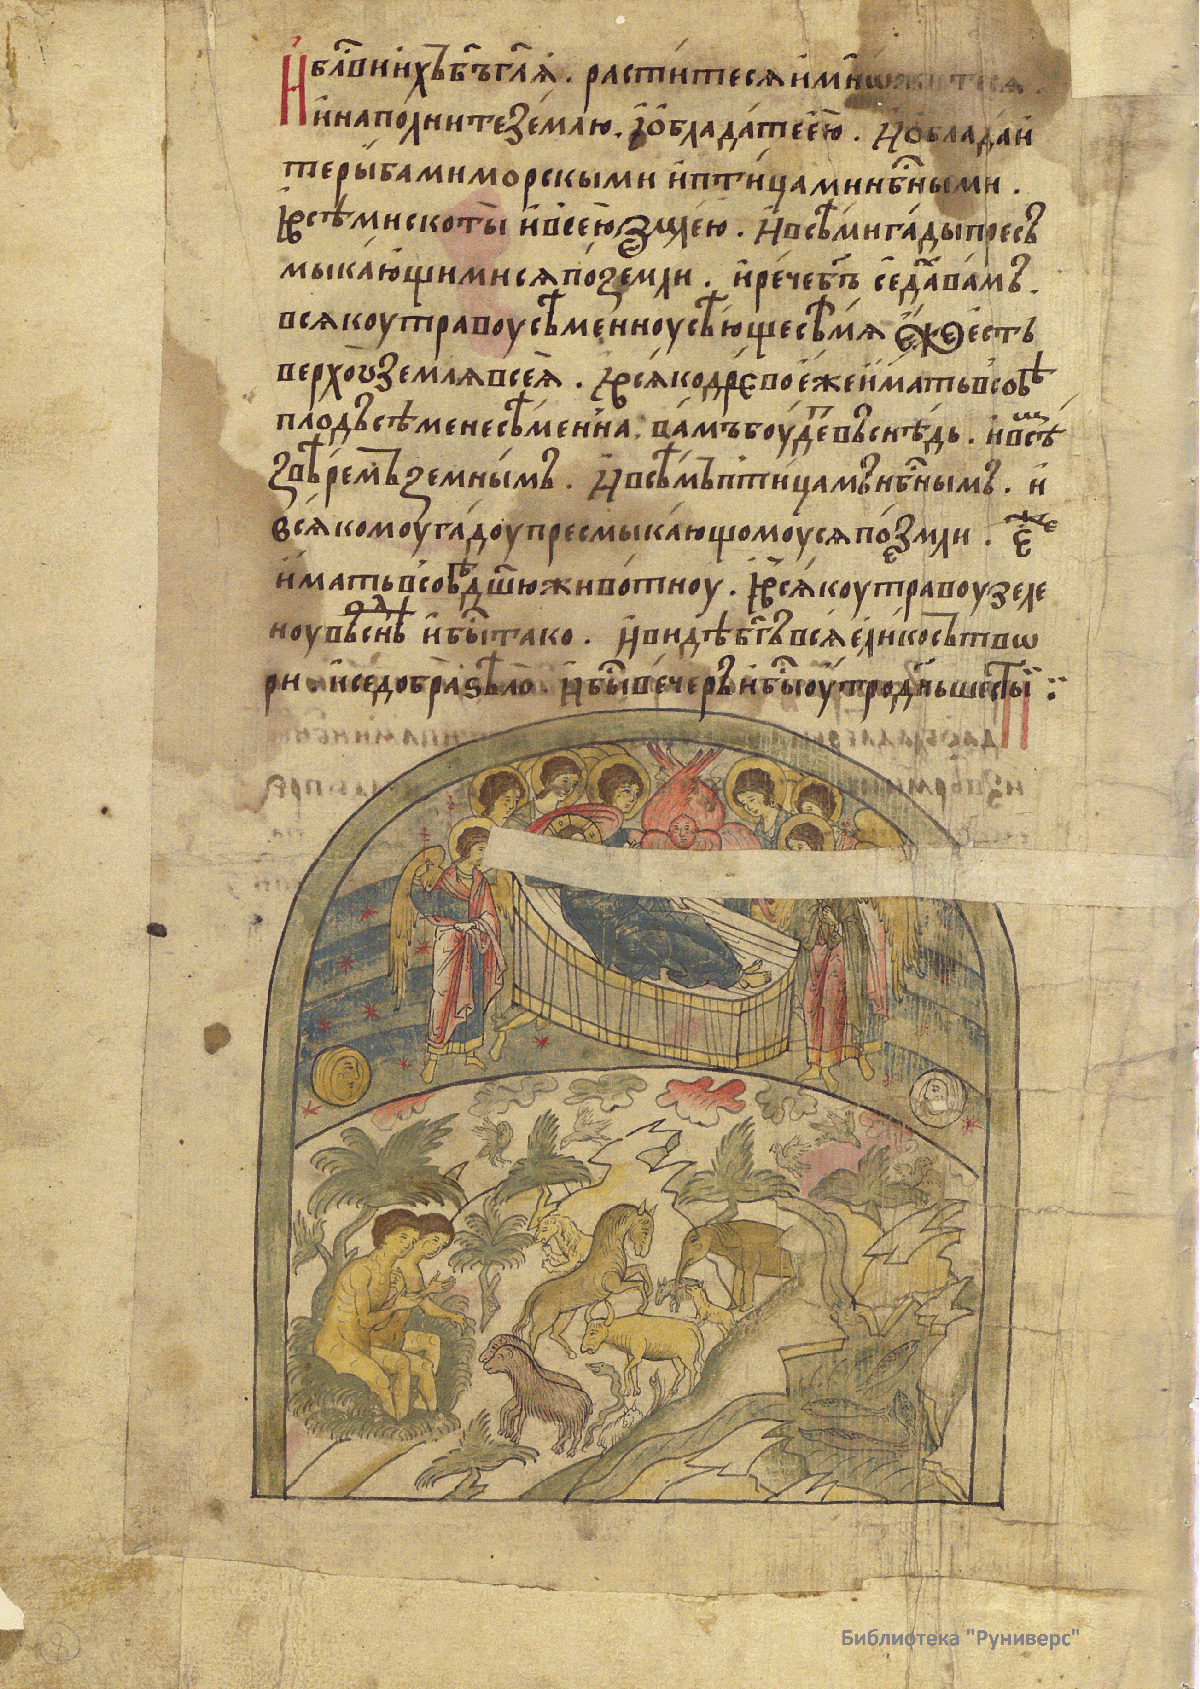 И блⷭ҇ви ихъ бг҃ъ гл҃ѧ . раститесѧ и мн
и наполните землю . и обладате ею . И обладаи
те рыбами морскыми и птицами нбⷭ҇ными .
И всѣми скоты и всею землею . И всѣми гады пресъ
мыкающимисѧ по земли . и рече бг҃ъ се дахъ вамъ .
всѧкоу травоу сѣменноу сѣющѹ сѣмѧ еже есть
верхоу землѧ всеѧ . И всѧко древо еже имать в собѣ
плодъ сѣмене сѣменна . вамъ боудеть въ снѣдь . и всѣ
звѣремъ земнымъ . И всѣмъ птицамъ нбⷭ҇нымъ . и
всѧкомоу гадоу пресмыкающомоусѧ по земли . еже
имать в собѣ дш҃ю животноу . И всѧкоу травоу зеле
ноу въ снѣдь и бы тако . И видѣ бг҃ъ всѧ елико сътвѡ
ри . и се добра ѕѣло . И бы вечеръ и бы оутро дн҃ь шесты :
Библиотека "Руниверс"